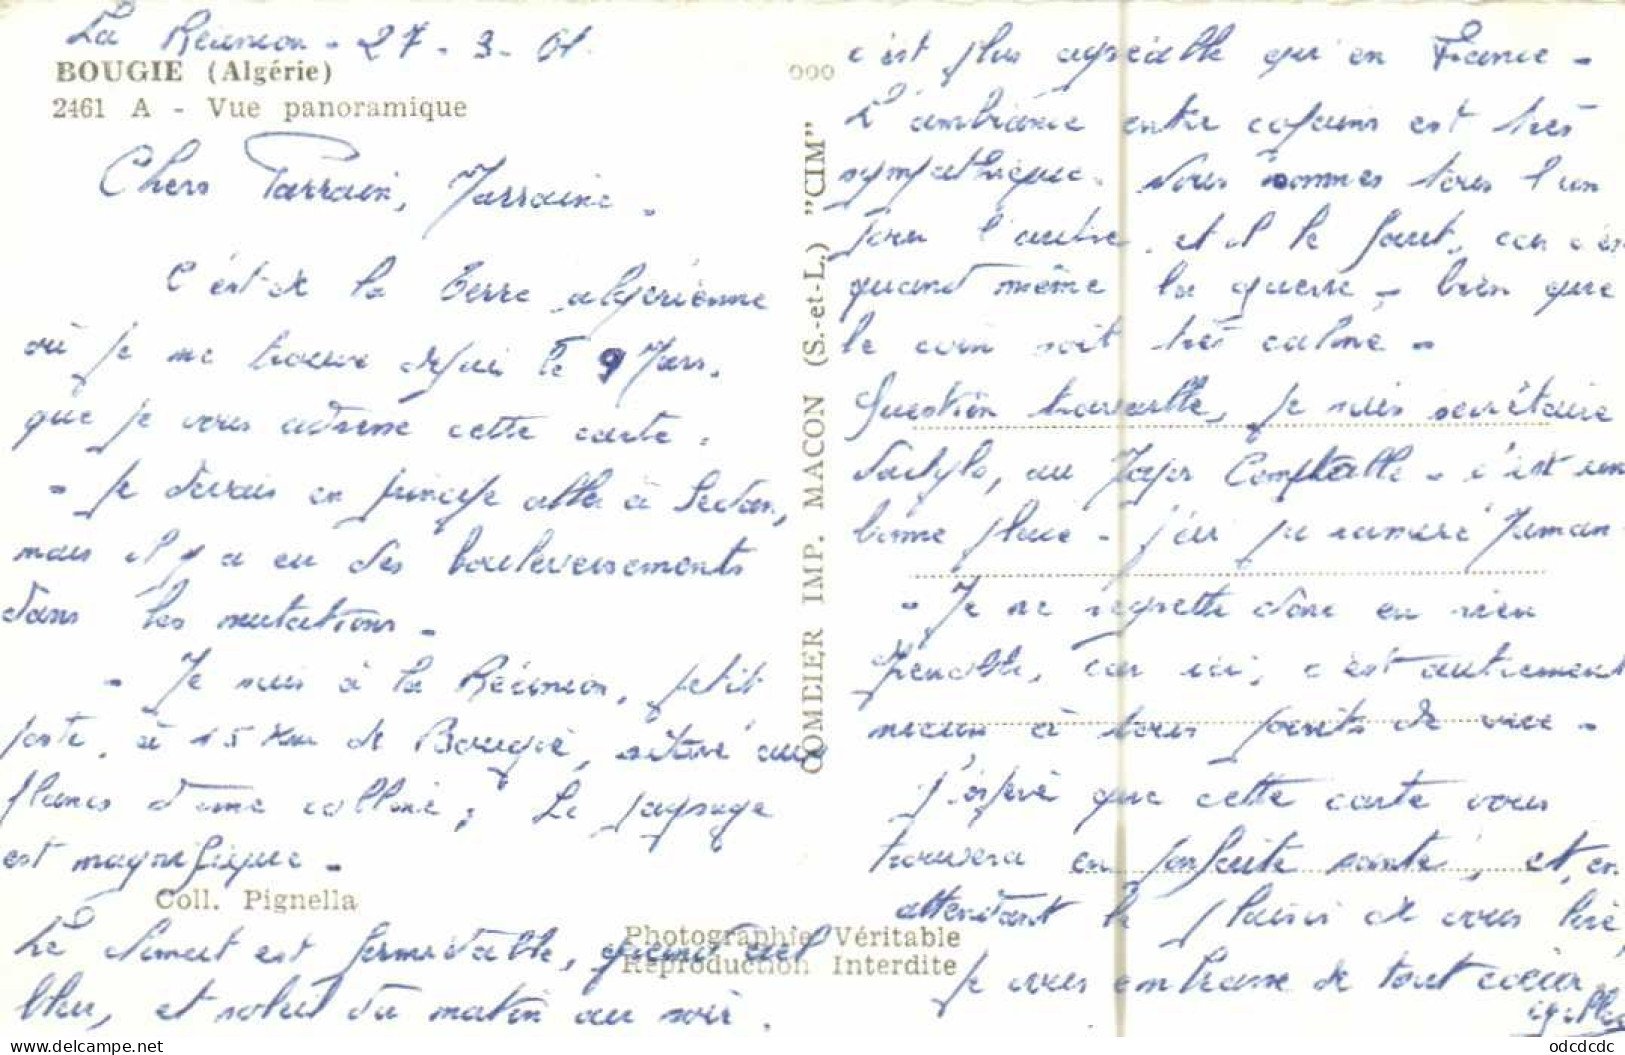 La Réunion - 27 - 3 - 61
BOUGIE (Algérie)
2461 A - Vue panoramique
Chers Parrain, Marraine -
C'est de la terre algérienne
où je me trouve depuis le 9 Mars,
que je vous adresse cette carte.
- Je devais en principe aller à Sedan,
mais il y a eu des bouleversements
dans les mutations -
- Je suis à la Réunion, petit
poste, à 15 Km de Bougie, situé aux
flancs d'une colline; Le paysage
est magnifique -
Coll. Pignella
Le climat est formidable, grand ciel
bleu, et soleil du matin au soir.
Photographie Véritable
Reproduction Interdite
COMBIER IMP. MACON (S.-et-L.) "CIM"
c'est plus agréable qu'en France -
L'ambiance entre copains est très
sympathique. Nous sommes tous l'un
pour l'autre, et il le faut, car c'est
quand même la guerre - bien que
le coin soit très calme -
Question travaille, je suis secrétaire
dactylo, au Foyer Comptable - c'est une
bonne place - j'ai
- Je ne regrette donc en rien
Grenoble, car ici, c'est autrement
mieux à tous points de vue -
J'espère que cette carte vous
trouvera en parfaite santé, et, en
attendant le plaisir de vous lire,
je vous embrasse de tout coeur
odcdcdc